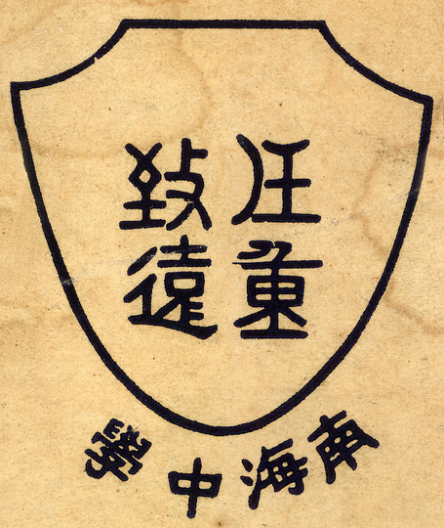 任重
致遠
南海中學